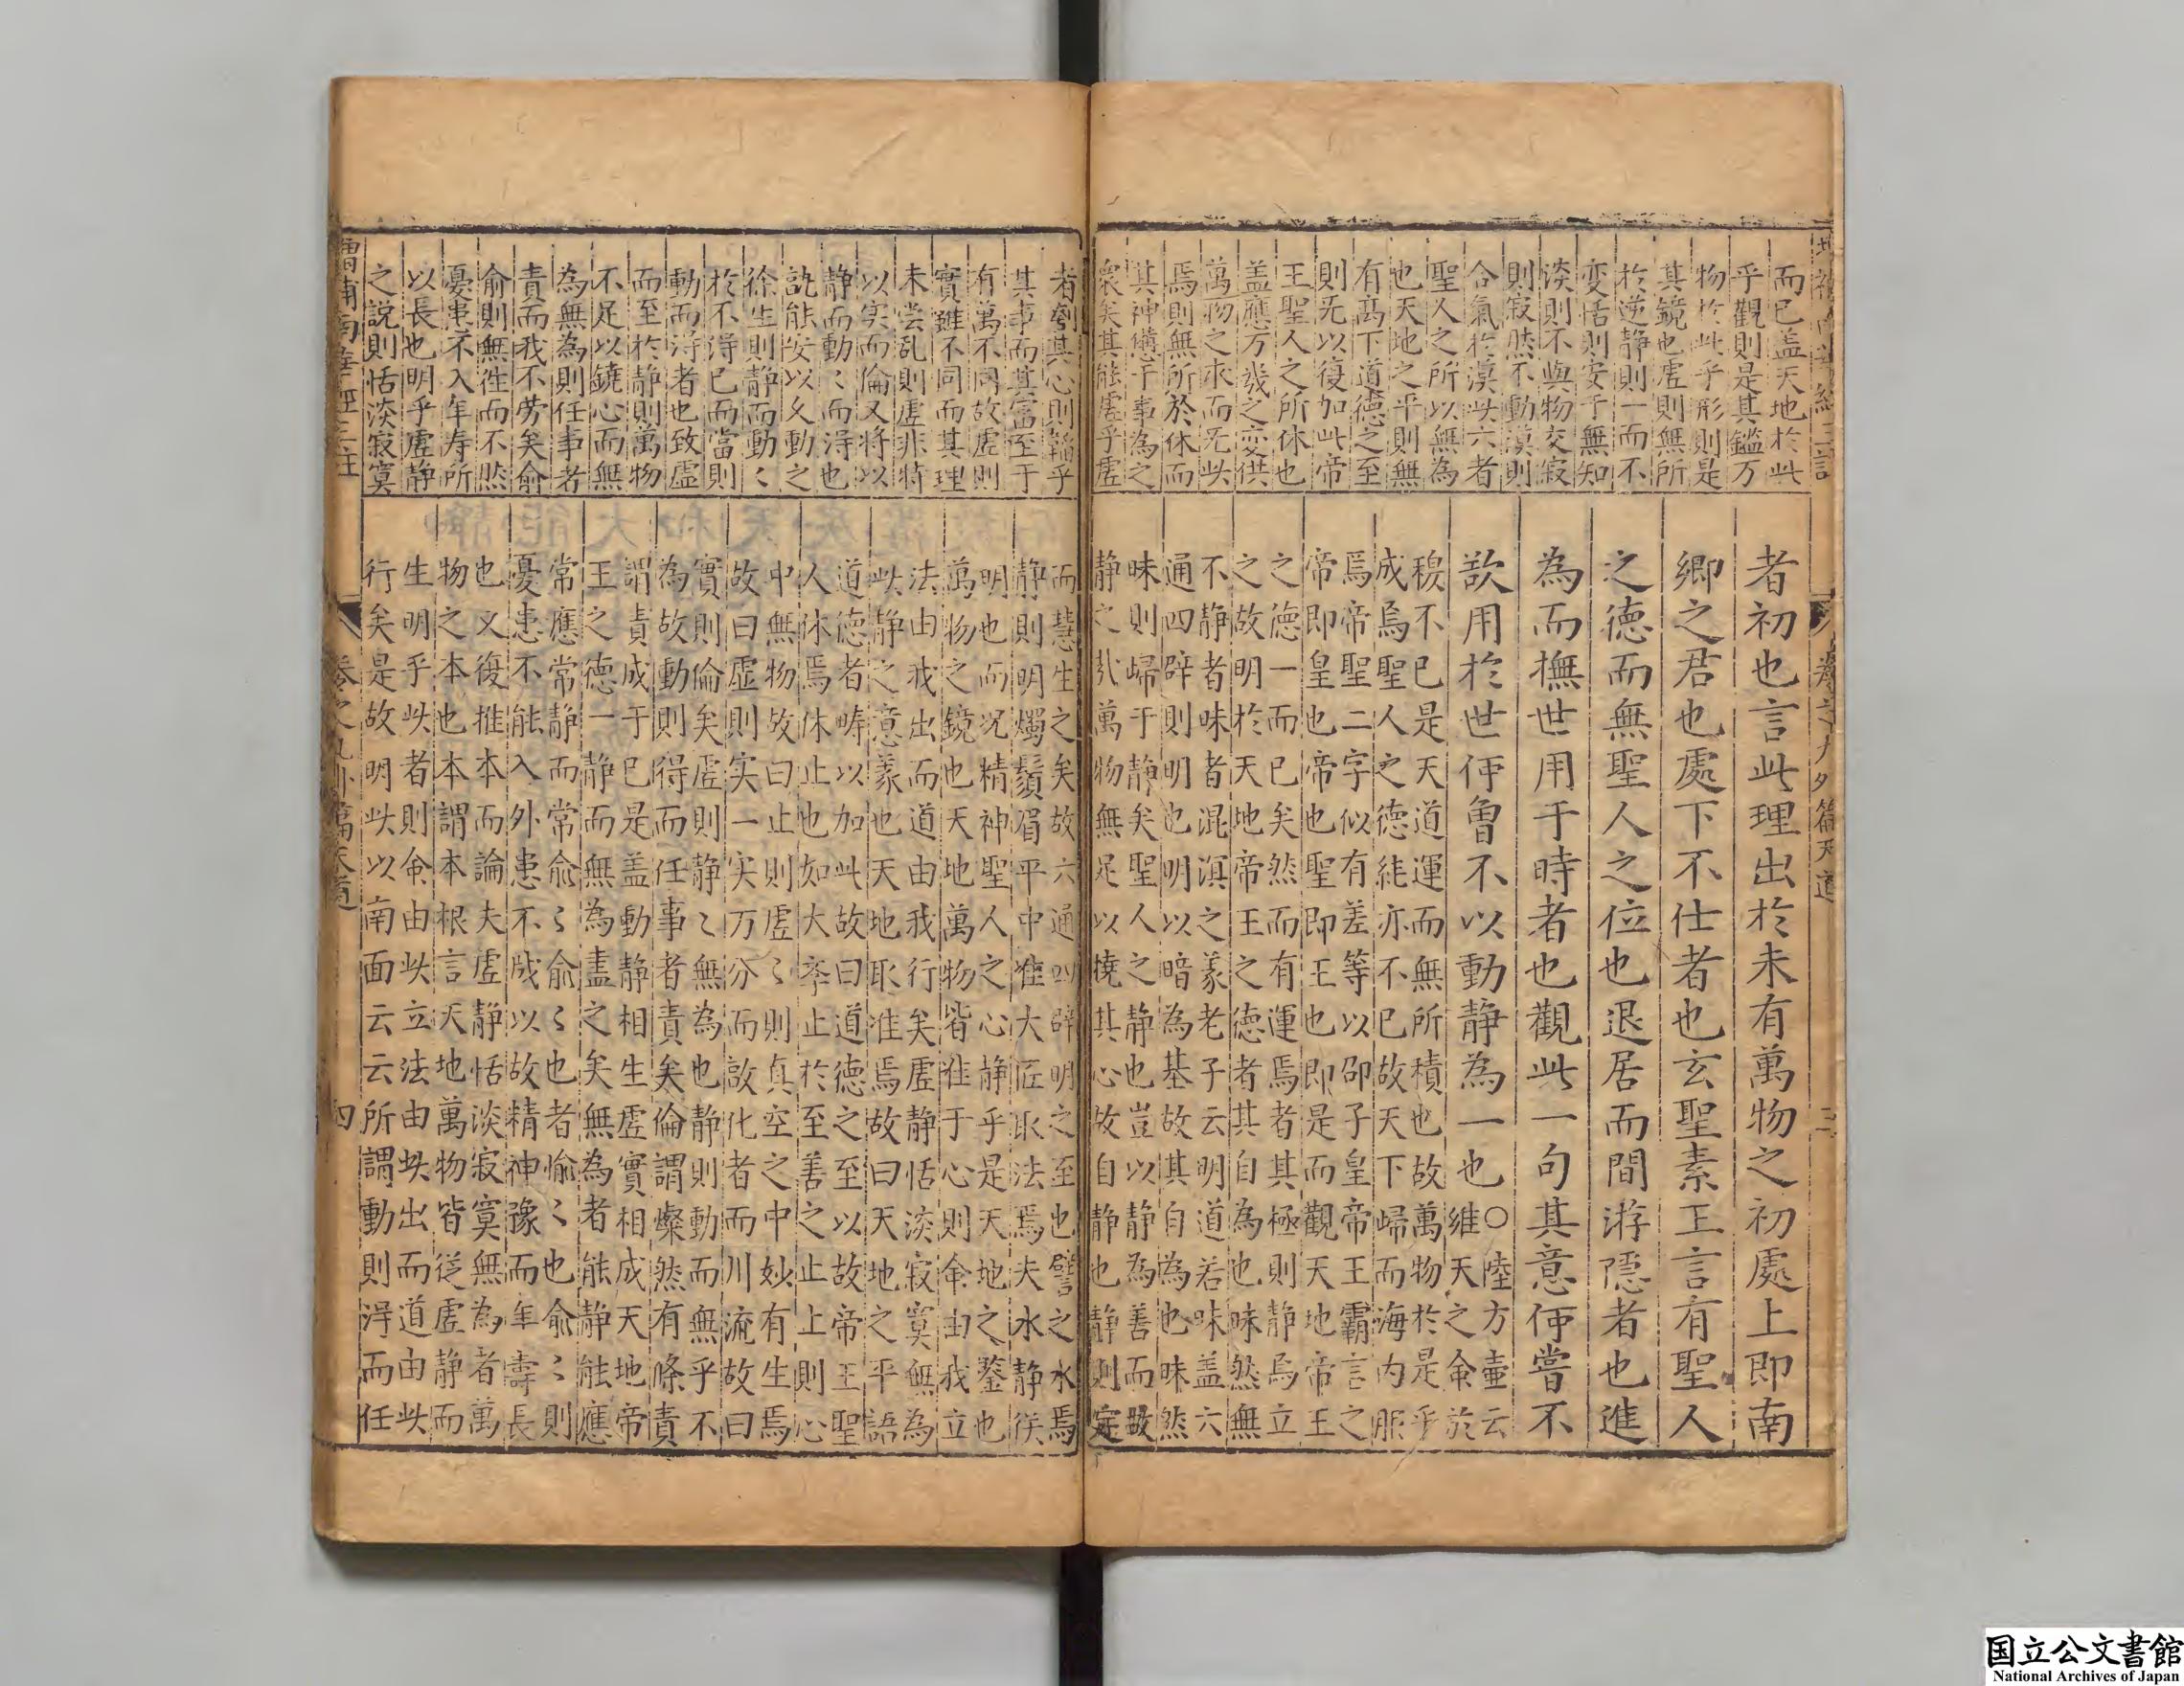 而已盖天地於此
乎觀則是其鑑万
物於此乎形則是
其鏡也虛則無所
於逆静則一而不
変恬則安于無知
淡則不與物交寂
則寂然不動漠則
合氣於漠此六者
聖人之所以無為
也天地之平則無
有髙下道德之至
則旡以復加此帝
王聖人之所休也
盖應万幾之変供
萬物之求而旡此
焉則無所於休而
其神憊于事為之
衆矣其能虛乎虛
者初也言此理出於未有萬物之初處上即南
鄉之君也處下不仕者也玄聖素王言有聖人
之德而無聖人之位也退居而間游隱者也進
為而撫世用于時者也觀此一句其意何嘗不
欲用於世何曾不以動静為一也○陸方壺云
維天之命於
穆不已是天道運而無所積也故萬物於是乎
成焉聖人之德純亦不已故天下歸而海内服
焉帝聖二字似有差等以邵子皇帝王霸言之
帝即皇也帝也聖即王也即是而觀天地帝王
之德一而已矣然而有運焉者其極則静焉立
之故明於天地帝王之德者其自為也昧然無
不静者昧者混溟之義老子云明道若昧盖六
通四辟則明也明以暗為基故其自為也昧然
昧則歸于静矣聖人之静也豈以静為善而故
静之哉萬物無足以撓其心故自静也静則定
者刳其心則韜乎
其事而其富至于
有萬不同故虛則
實雖不同而其理
未尝乱則虛非特
以实而倫又将以
静而動〻而淂也
孰能安以久動之
徐生則静而動〻
於不淂已而當則
動而淂者也致虛
而至於静則萬物
不足以鐃心而無
為無為則任事者
責而我不劳矣俞
俞則無徃而不㸐
憂患不入年寿所
以長也明乎虛静
之説則恬淡寂寞
而慧生之矣故六通四辟明之至也譬之水焉
静則明燭鬚眉平中准大匠取法焉夫水静猶
明也而况精神聖人之心静乎是天地之鉴也
萬物之鏡也天地萬物皆准于心則命由我立
法由我出而道由我行矣虛静恬淡寂寞無為
此静之意義也天地取准焉故曰天地之平語
道德者時以加此故曰道德之至以故帝王聖
人休焉休止也如大李止於至善之止止則心
中無物故曰止則虛〻則真空之中妙有生焉
故曰虛則实一实万分而敦化者而川流故曰
實則倫矣虛則静〻無為也静則動而無乎不
為故動則得而任事者責矣倫謂燦然有條責
謂責成于已是盖動静相生虛實相成天地帝
王之德一静而無為盡之矣無為者能静能應
常應常静而常俞〻俞〻也者愉〻也俞〻則
憂患不能入外患不成以故精神豫而年壽長
也又復推本而論夫虛静恬淡寂寞無為者萬
物之本也本謂本根言天地萬物皆従虛静而
生明乎此者則命由此立法由此出而道由此
行矣是故明此以南面云云所謂動則淂而任
卷之九外篇天道
四
国立公文書館
National Archives of Japan